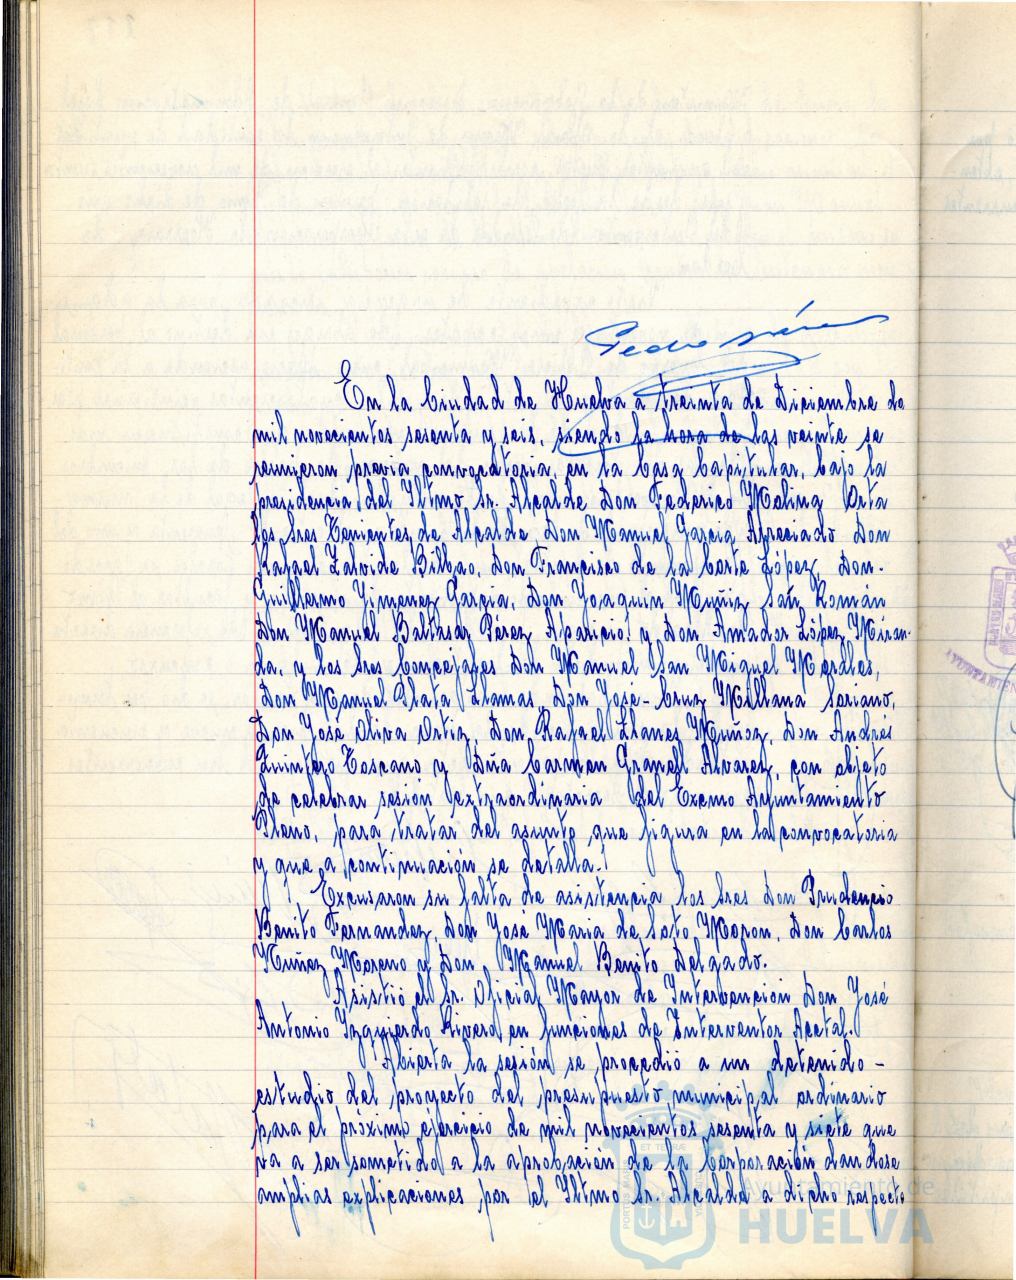 Pedro
En la Ciudad de Huelva a treinta de Diciembre de
mil novecientos sesenta y seis, siendo la hora de las veinte se
reunieron previa convocatoria, en la Casa Capitular, bajo la
presidencia del Iltmo. Sr. Alcalde Don Federico Molina Orta
los Sres Tenientes de Alcalde Don Manuel Garcia Apreciado Don
Rafael Zalvide Bilbao, Don Francisco de la Corte López, Don.
Guillermo Jimenez Garcia, Don Joaquin Muñiz San Román
Don Manuel Baltasar Pérez Aparicio y Don Amador López Miran-
da, y los Sres Concejales Don Manuel San Miguel Morales,
Don Manuel Plata Llamas, Don José-Cruz Mellana Soriano,
Don José Oliva Ortiz, Don Rafael Llanes Muñoz, Don Andrés
Quintero Toscano y Dña Carmen Granell Alvarez, con objeto
de celebrar sesión extraordinaria del Excmo Ayuntamiento
Pleno, para tratar del asunto que figura en la convocatoria
y que a continuación se detalla.
Excusaron su falta de asistencia los Sres Don Prudencio
Benito Fernandez, Don José Maria de Soto Moron, Don Carlos
Muñoz Moreno y Don Manuel Benito Delgado.
Asistió el Sr. Oficial Mayor de Intervención Don José
Antonio Izquierdo Rivero en funciones de Interventor Acctal.
Abierta la sesión se procedió a un detenido -
estudio del proyecto del presupuesto municipal ordinario
para el próximo ejercicio de mil novecientos sesenta y siete que
va a ser sometido a la aprobación de la Corporación dandose
amplias explicaciones por el Iltmo Sr. Alcalde a dicho respecto
Ayuntamiento de
HUELVA